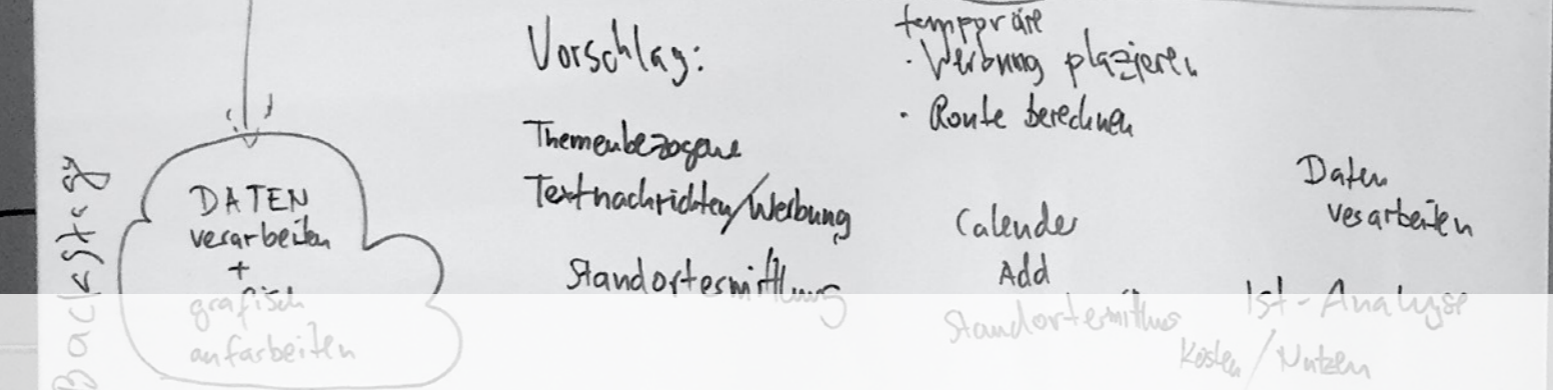 Backstage
DATEN
verarbeiten
+
grafisch
anfarbeiten
Vorschlag:
Themenbezogene
Textnachrichten/Werbung
Standortermittlung
temporäre
· Werbung plazieren
· Route berechnen
Calender
Add
Standortermittlung
Daten
verarbeiten
Ist-Analyse
Kosten/Nutzen